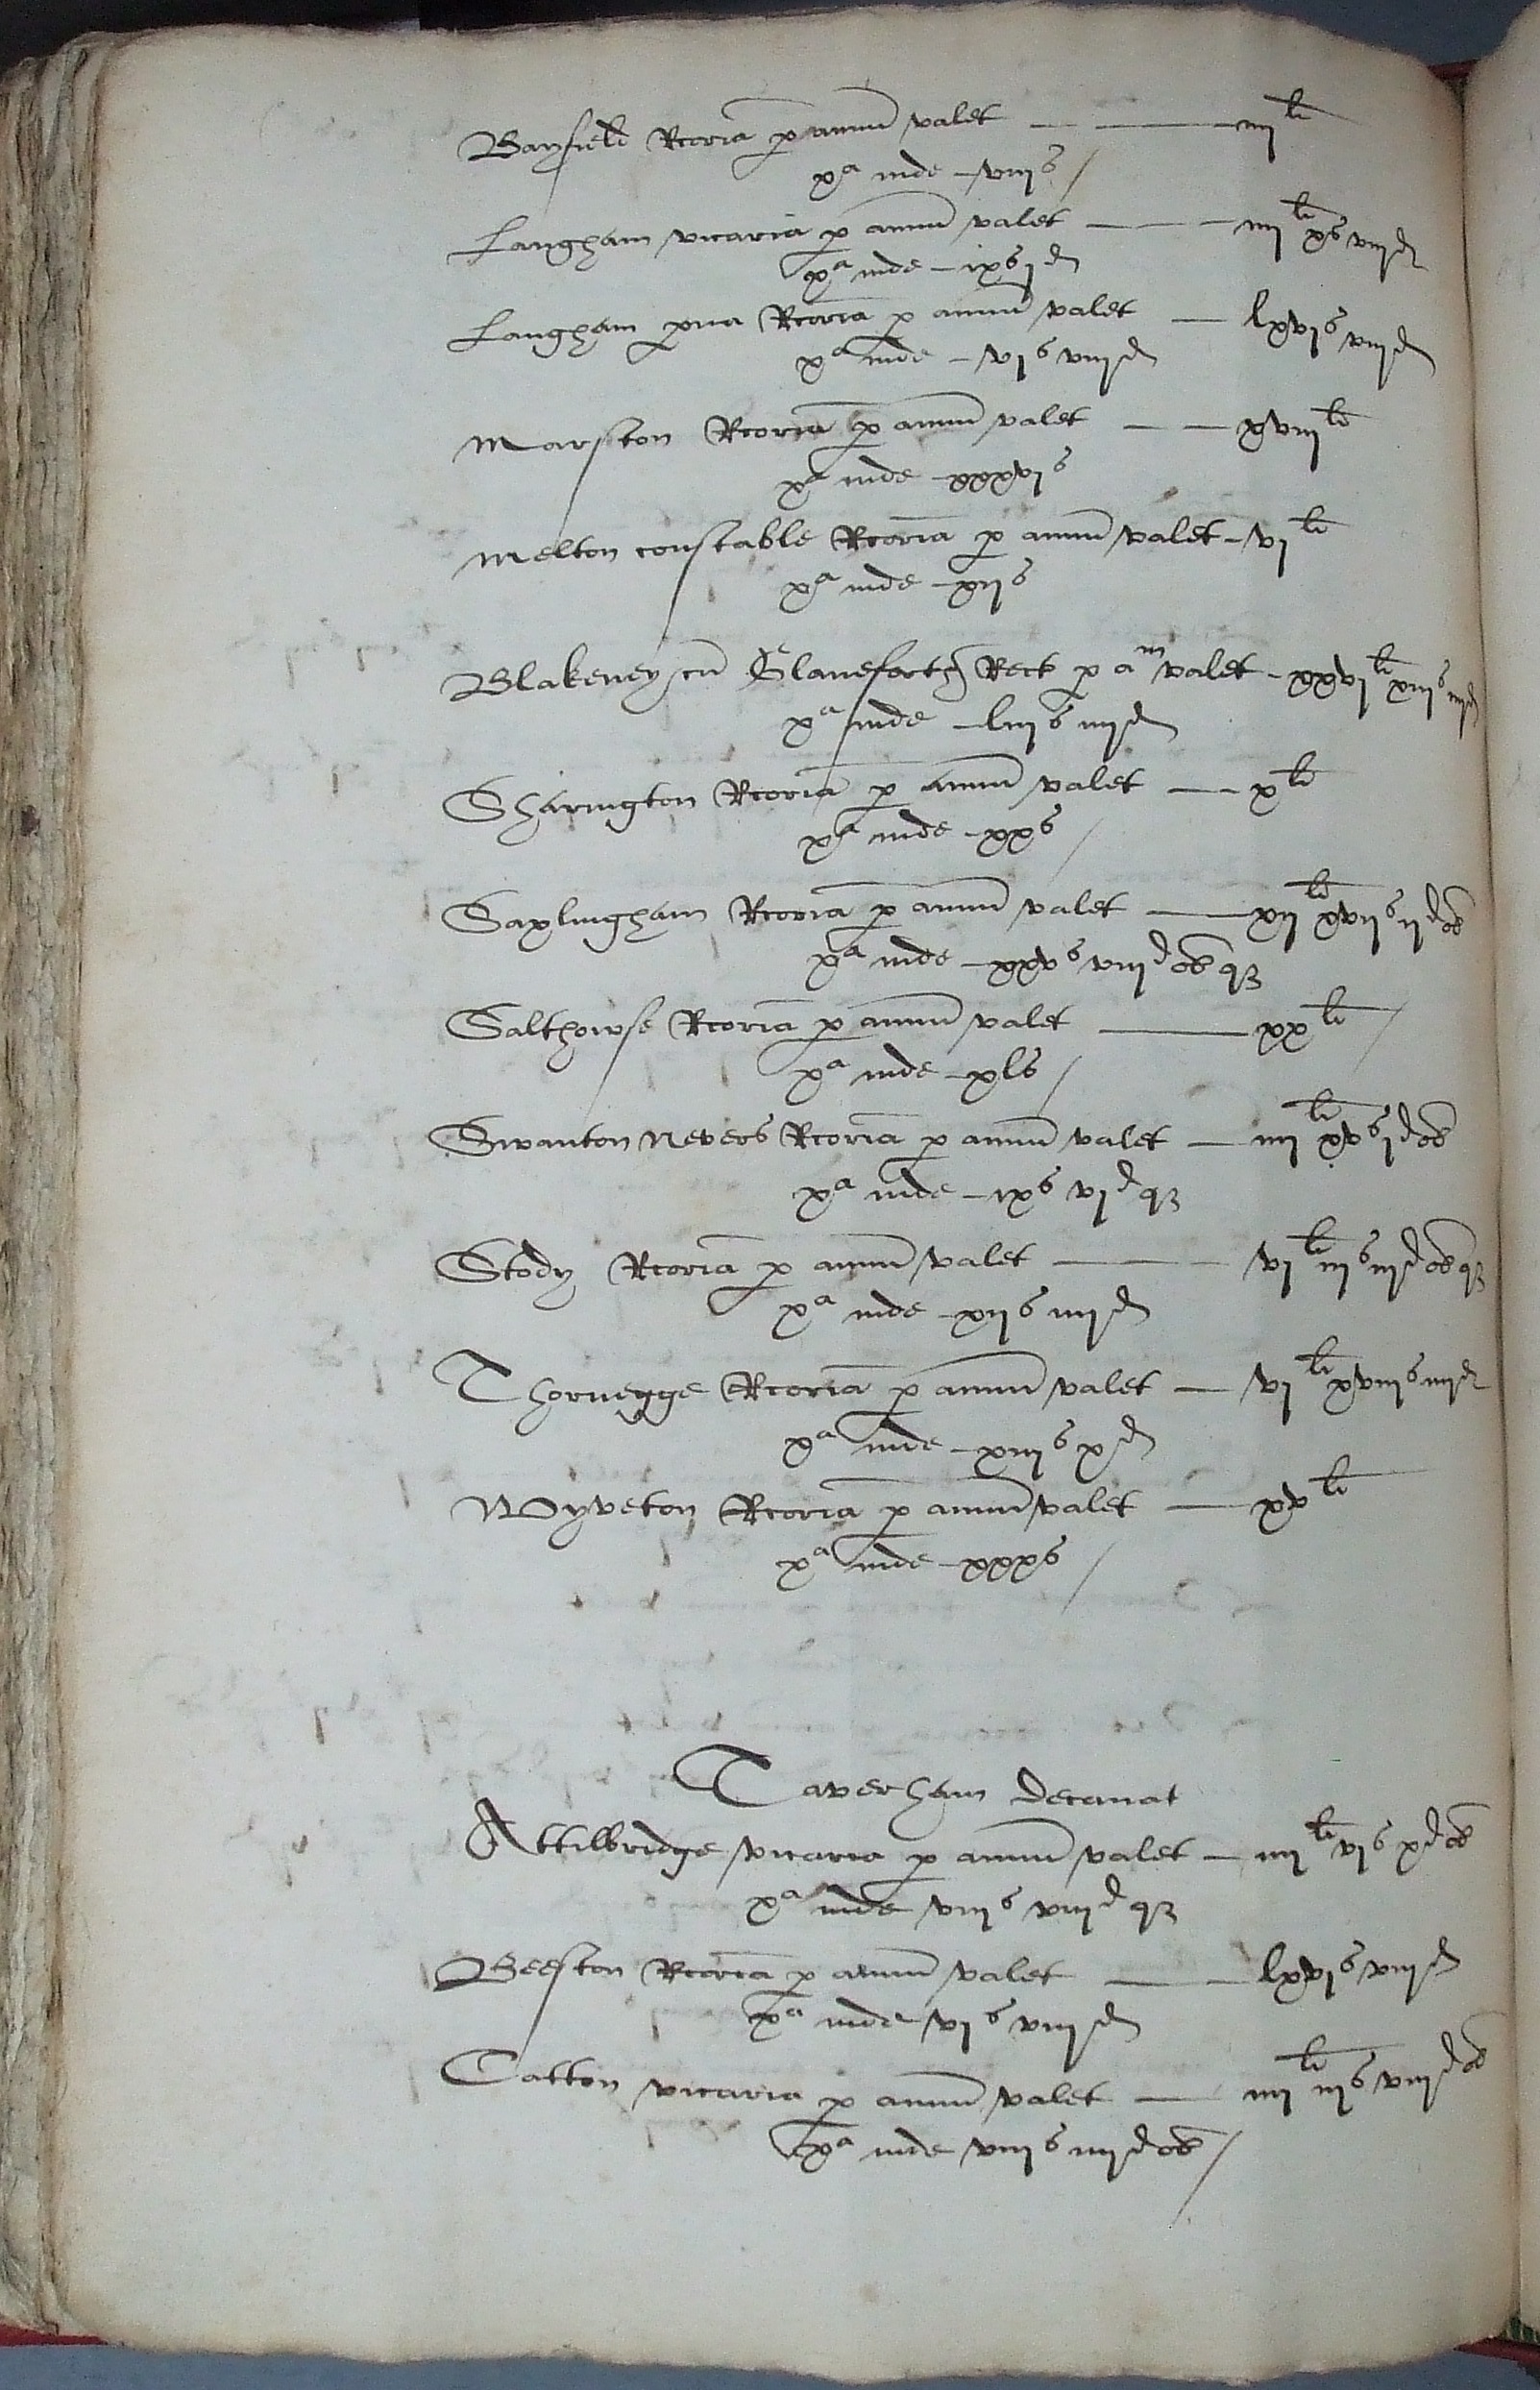 Banfield Rcoria p annu valet — iiij li
xa inde – viij s
Langham vicaria p annu valet — iiij li x s viij d
xa inde – ix s j d
Langham pva Rcoria p annu valet — lxvj s viij d
xa inde – vj s viij d
Marston Rcoria p annu valet — xviij li
xa inde – xxxvj s
Melton constable Rcoria p annu valet – vj li
xa inde – xij s
Blakeney cu Glaneforth Rect p am valet – xxvj li xiij s iiij d
xa inde – liij s iiij d
Sharington Rcoria p annu valet — x li
xa inde – xx s
Saxlingham Rcoria p annu valet — xij li xvij s ij d ob
xa inde – xxv s viij d ob qz
Salthowse Rcoria p annu valet — xx li
xa inde – xl s
Swanton Nevers Rcoria p annu valet — iiij li xv s j d ob
xa inde – ix s vj d qz
Stody Rcoria p annu valet — vj li iij s iiij d ob qz
xa inde – xij s iiij d
Thornegge Rcoria p annu valet — vj li xviij s iiij d
xa inde – xiij s x d
Wyveton Rcoria p annu valet — xv li
xa inde – xxx s
Taverham Decanat
Attilbridge vicaria p annu valet — iiij li vj s x d ob
xa inde viij s viij d qz
Beeston Rcoria p annu valet — lxvj s viij d
xa inde vj s viij d
Catton vicaria p annu valet — iiij li iij s viij d ob
xa inde viij s iiij d ob